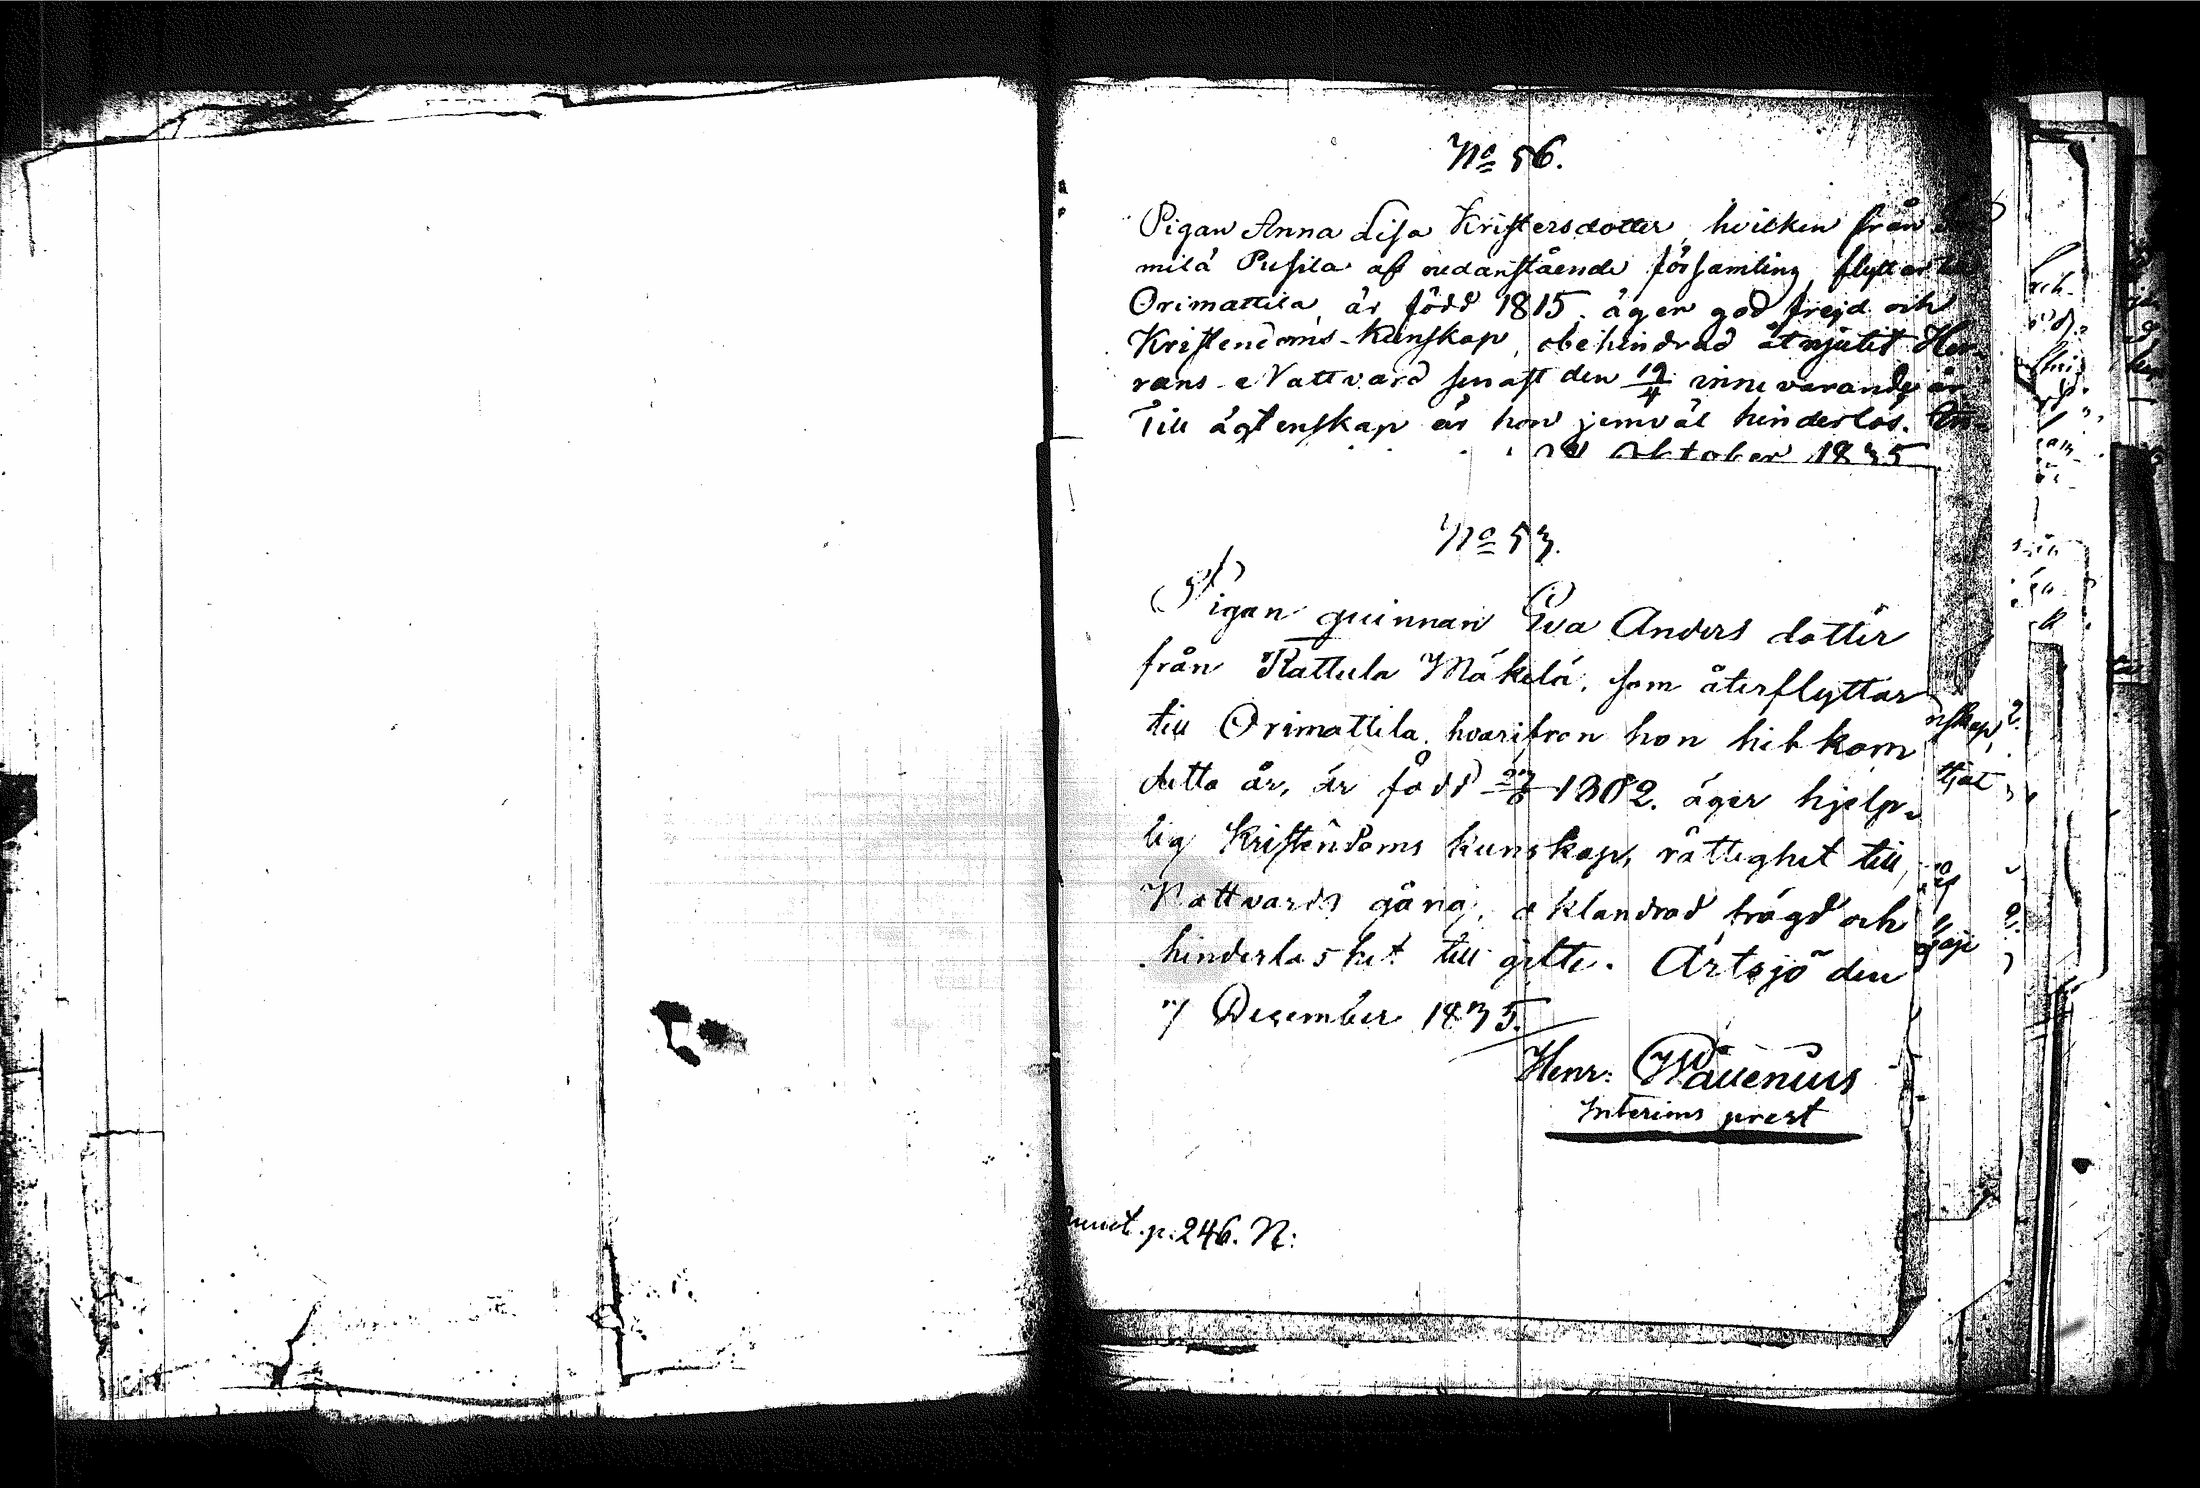 No 56.
Pigan Anna Lisa Kristersdotter, hvilken från
milä Pusila af nedanstående församling flyttar till
Orimattila, är född 1815. äger god frejd och
Kristendoms-Kunskap, obehindrad åtnjutit Her-
rans Nattvard senast den 19/4 innevarande år
Till ägtenskap är hon jemväl hinderlös.
Oktober 1835
No 57.
Pigan quinnan Eva Anders dotter
från Rattula Mäkelä, som återflyttar
till Orimattila, hvarifron hon hit kom
detta år, är född 1802. äger hjelp-
lig Kristendoms kunskap, rättighet till
Nattvards gång, oklandrad frägd och
hinderlöshet till gifte. Artsjö den
7 December 1835.
Henr: Wavenius
Interims prest
p. 246. N:
nskap
tjat